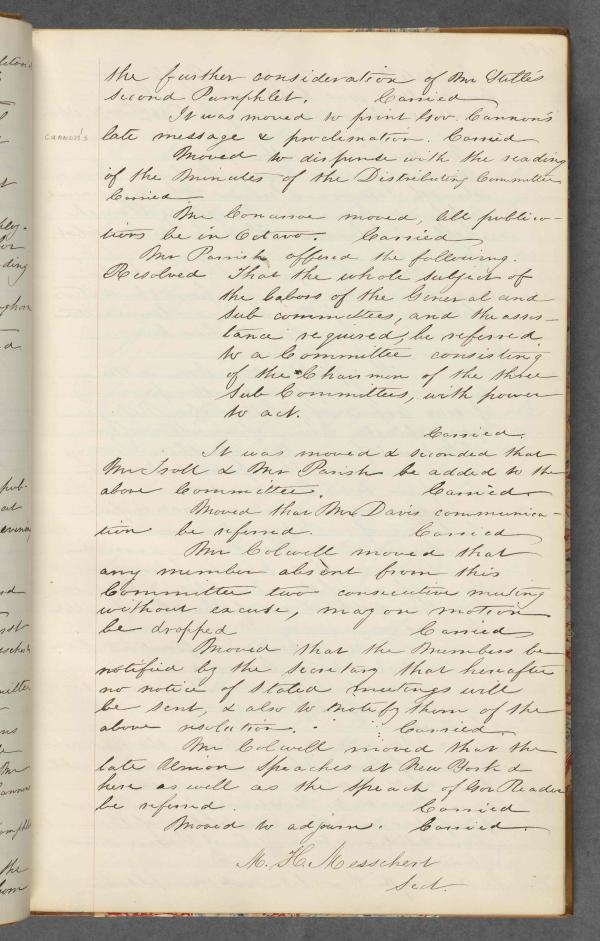 the further consideration of Mr Stille's
second Pamphlet. Carried
It was moved to print Gov. Cannon's
CANNON'S
late message & proclamation. Carried
Moved to dispense with the reading
of the Minutes of the Distributing Committee
Carried
Mr Conarroe moved, All publica-
tions be in Octavo. Carried
Mr Parrish offered the following.
Resolved That the whole subject of
the labors of the General and
sub committees, and the assis-
tance required, be referred
to a Committee consisting
of the Chairmen of the three
Sub Committees, with power
to act.
Carried.
It was moved & seconded that
Mr & Mr Parish be added to the
above Committee. Carried
Moved that Mr Davis communica-
tion be referred. Carried
Mr Colwell moved that
any member absent from this
Committee two consecutive meeting
without excuse, may on motion
be dropped Carried
Moved that the Members be
notified by the secretary that hereafter
no notice of stated meetings will
be sent, & also to notify them of the
above resolution. Carried
Mr Colwell moved that the
late Union Speaches at New York &
here as well as the speach of Gov Reader
be referred. Carried
Moved to adjourn. Carried
M. H. Messchert
Sect.